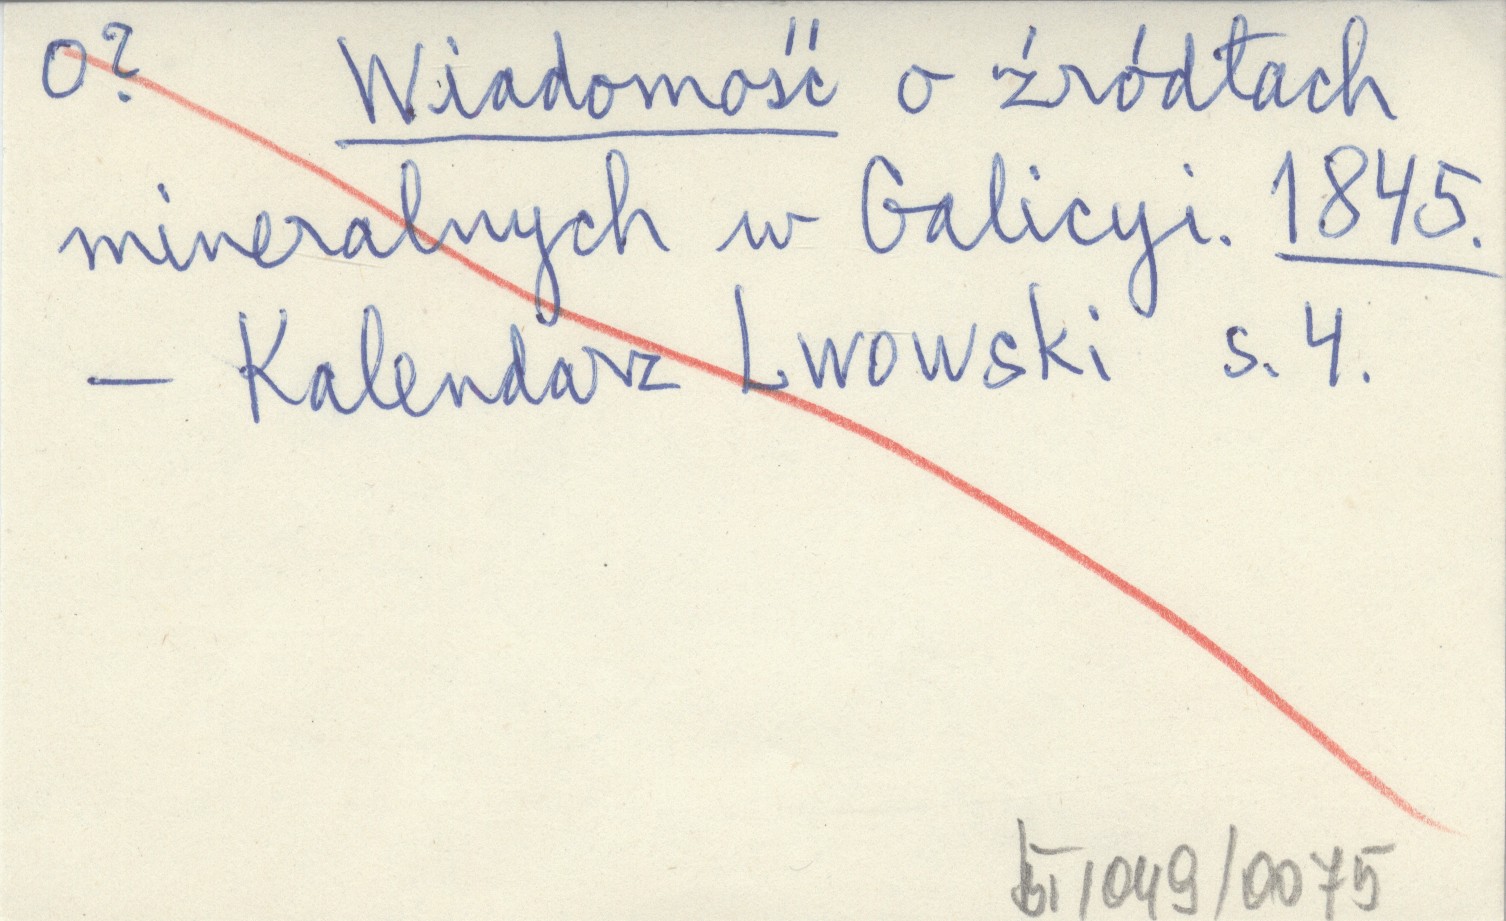 o? Wiadomość o źródłach
mineralnych w Galicyi. 1845.
— Kalendarz Lwowski s. 4.
/049/0075